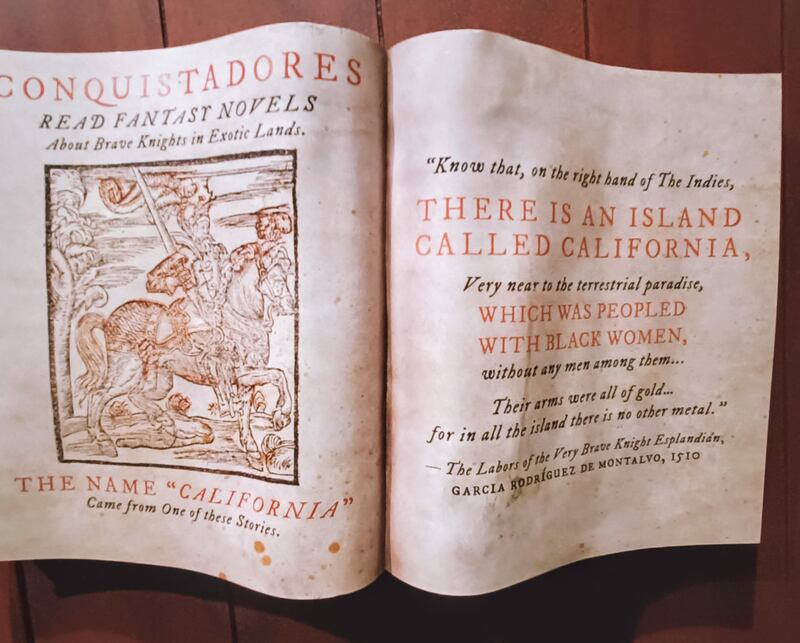 CONQUISTADORES
READ FANTASY NOVELS
About Brave Knights in Exotic Lands.
THE NAME "CALIFORNIA"
Came from One of these Stories.
"Know that, on the right hand of The Indies,
THERE IS AN ISLAND
CALLED CALIFORNIA,
Very near to the terrestrial paradise,
WHICH WAS PEOPLED
WITH BLACK WOMEN,
without any men among them...
Their arms were all of gold...
for in all the island there is no other metal."
— The Labors of the Very Brave Knight Esplandián,
GARCIA RODRÍGUEZ DE MONTALVO, 1510